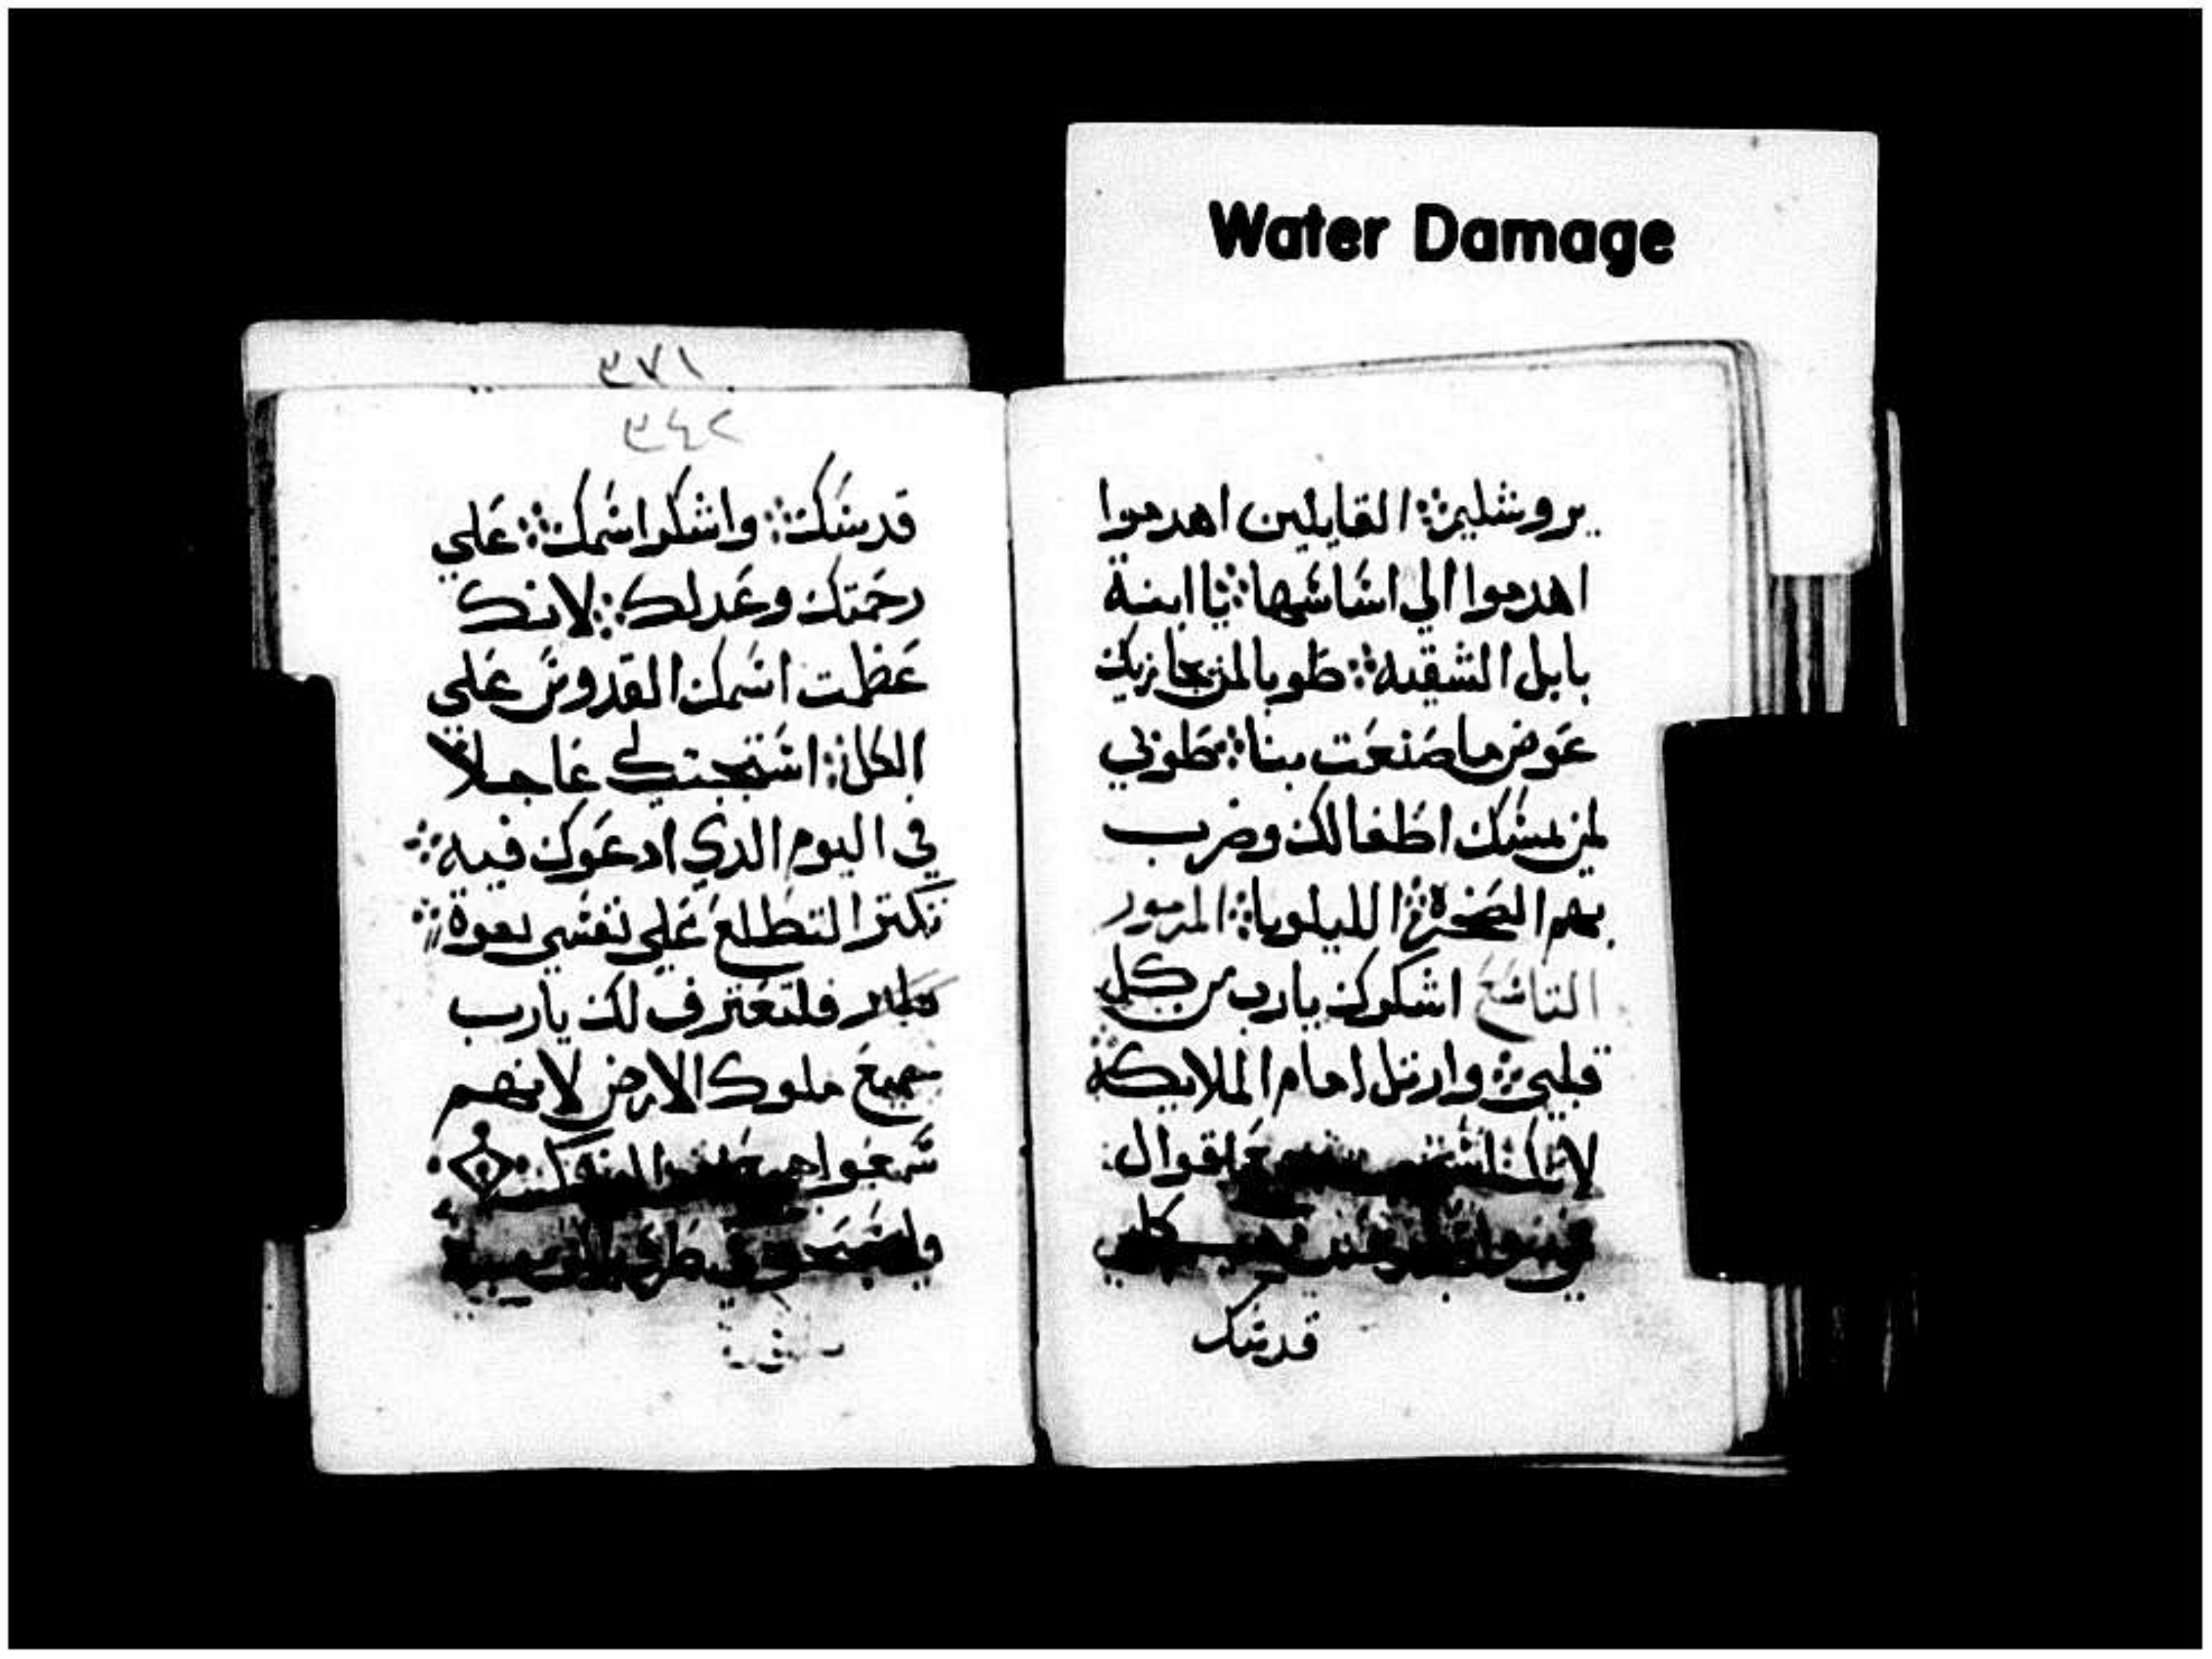 Water Damage
يروشليم القايلين اهدموا
اهدموا الي اساسها يا ابنة
بابل الشقيه طوبا لمن يجازيك
عوض ما صنعت بنا طوبي
لمن يمسك اطفالك وضرب
بهم الصخرة الليلويا المزمور
التاسع اشكرك يارب من كل
قلبي وارتل امام الملايكة
لانك اقوال
كلي
قدسك
٣٧١
٣٤٢
قدسك واشكر اسمك علي
رحمتك وعدلك لانك
عظمت اسمك القدوس علي
الكل استجبت لي عاجلا
في اليوم الدي ادعوك فيه
تكتر التطلع علي نفسي بقوة
فلتعترف لك يارب
جميع ملوك الارض لانهم
سمعوا
وليسبحوا في